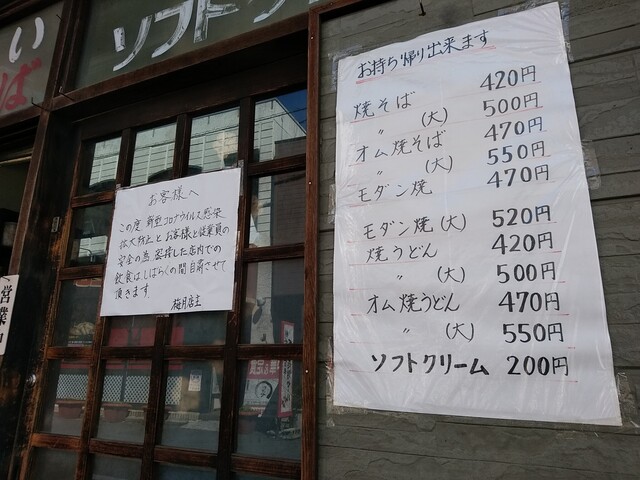 い
ば
ソフトク
お持ち帰り出来ます
焼そば 420円
〃 (大) 500円
オム焼そば 470円
〃 (大) 550円
モダン焼 470円
モダン焼(大) 520円
焼うどん 420円
〃 (大) 500円
オム焼うどん 470円
〃 (大) 550円
ソフトクリーム 200円
お客様へ
この度 新型コロナウイルス感染
拡大防止とお客様と従業員の
安全の為 客持した店内での
飲食はしばらくの間自粛させて
頂きます
梅月店主
営業中